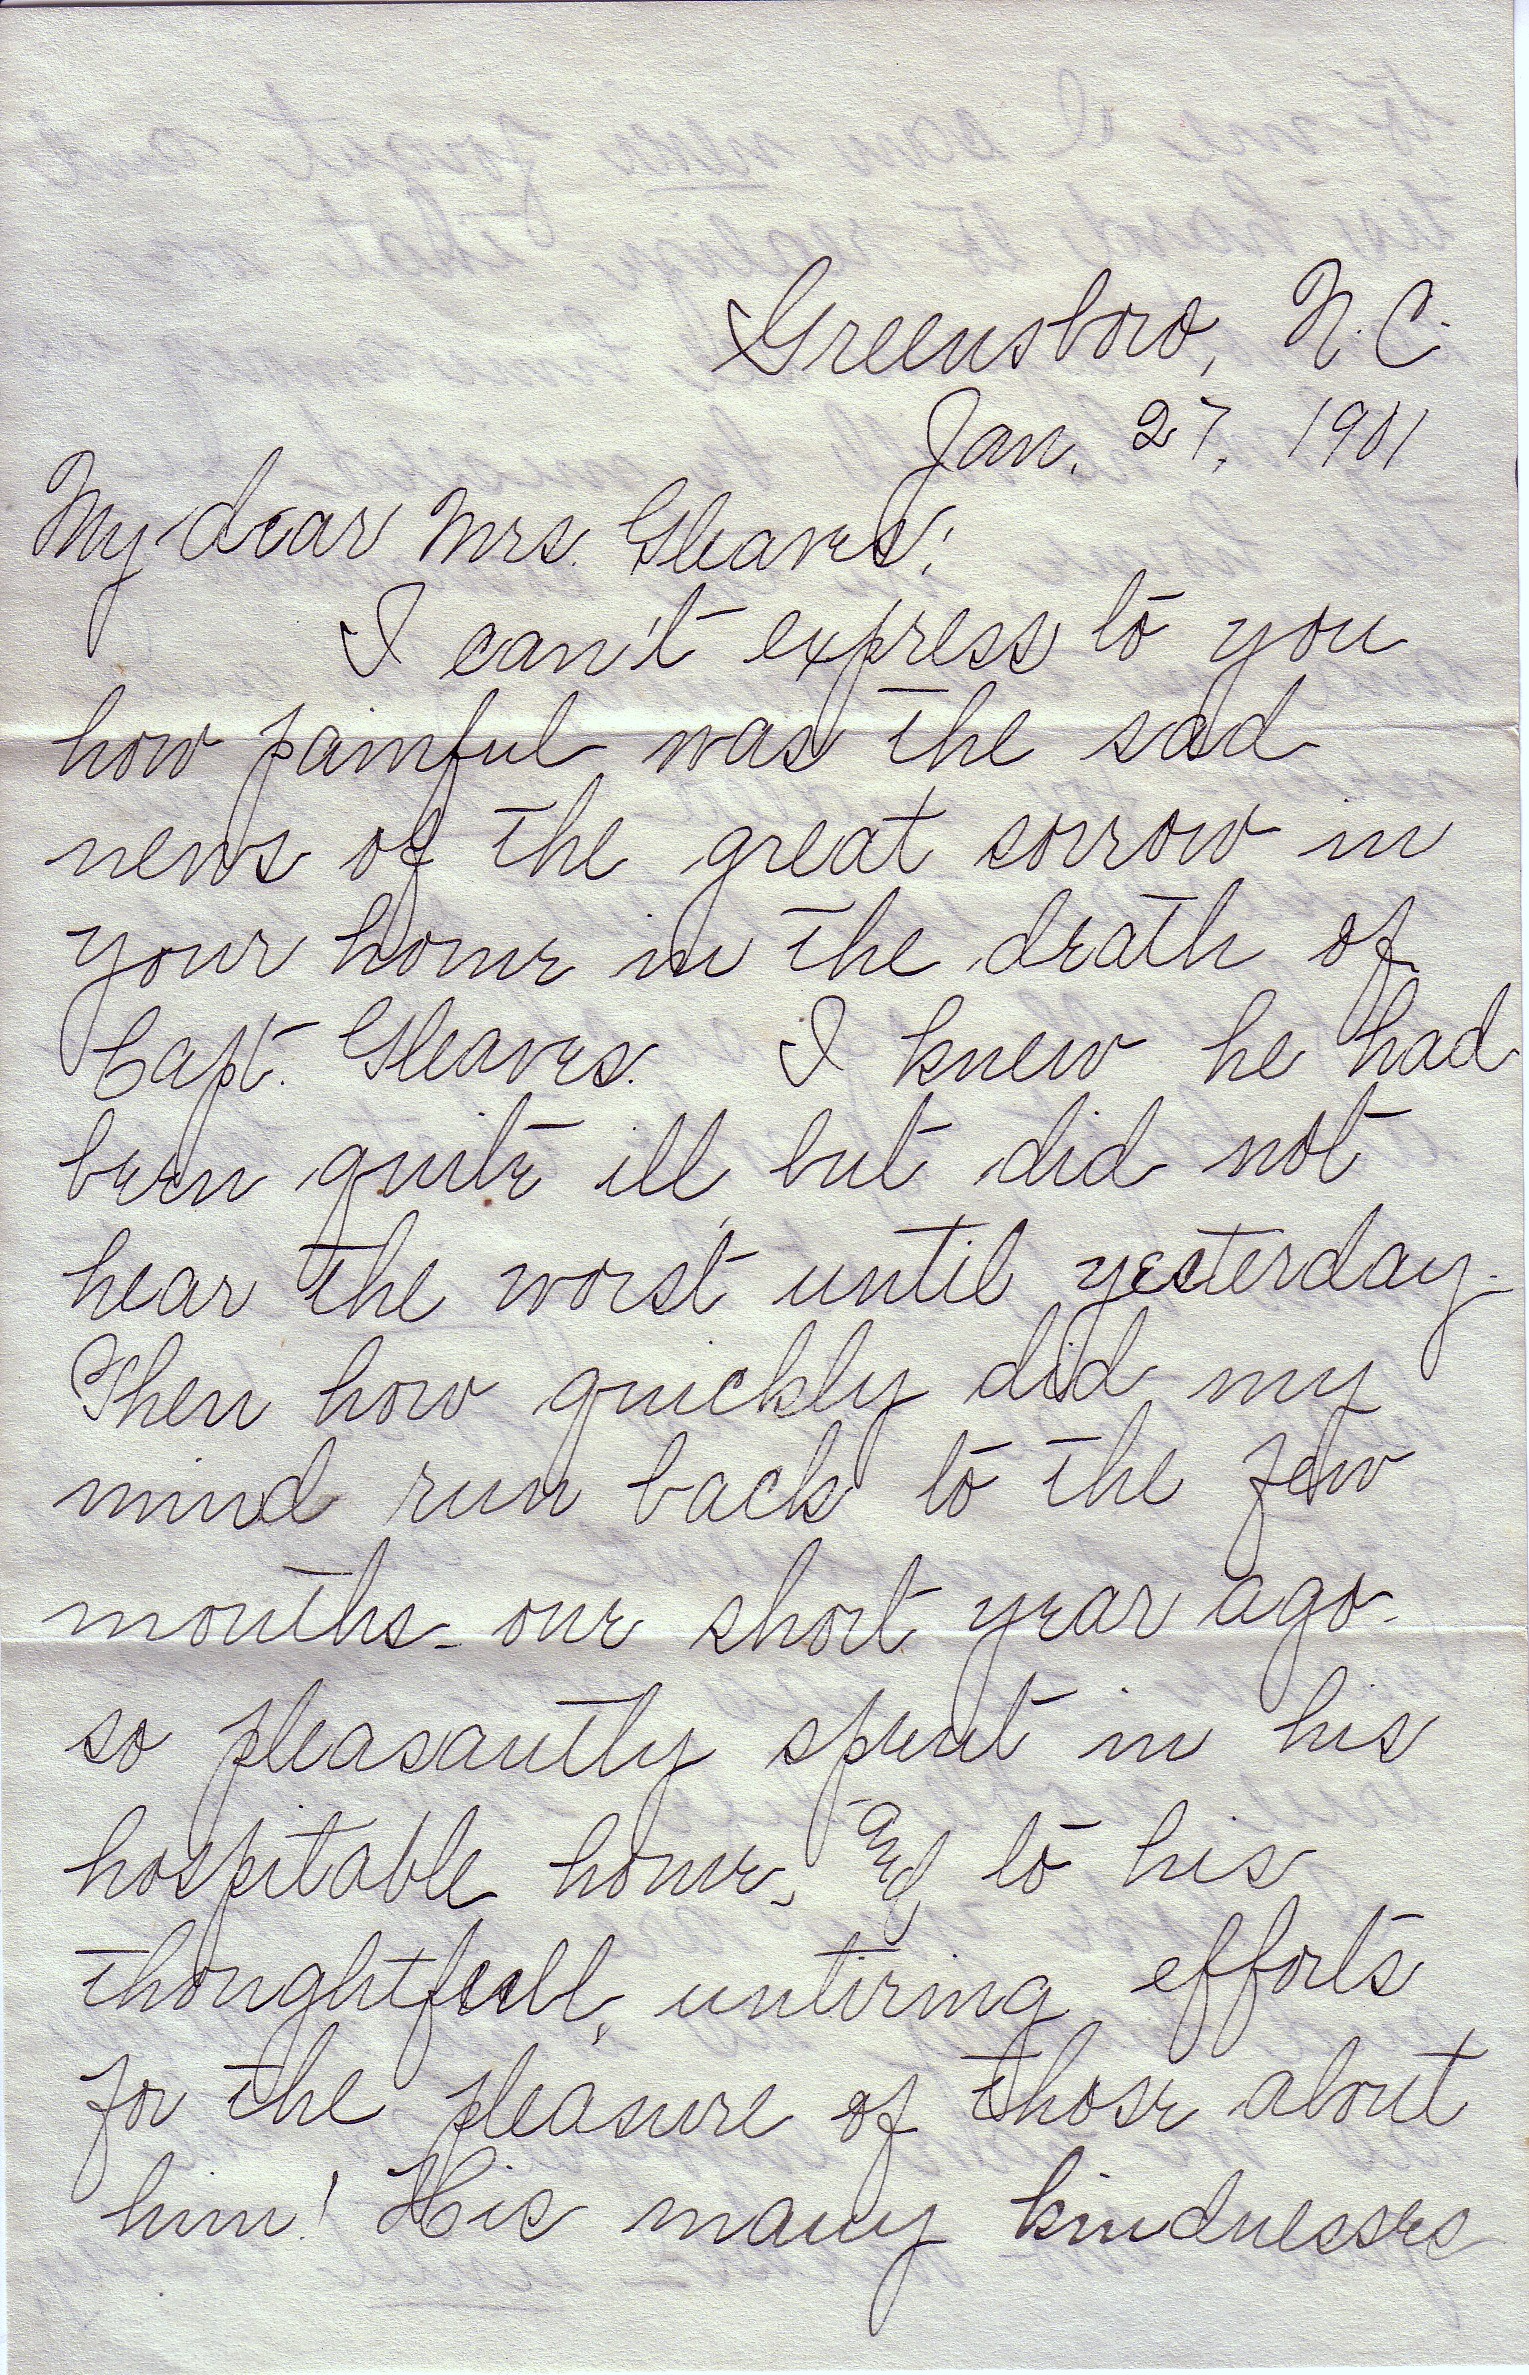 Greensboro, N.C.
Jan. 27, 1901
My dear Mrs. Gleaves:
I can't express to you
how painful was the sad
news of the great sorrow in
your home in the death of
Capt. Gleaves. I knew he had
been quite ill, but did not
hear the worst until yesterday.
Then how quickly did my
mind run back to the few
months - one short year ago -
so pleasantly spent in his
hospitable home, and to his
thoughtfull, untiring efforts
for the pleasure of those about
him! His many kindnesses